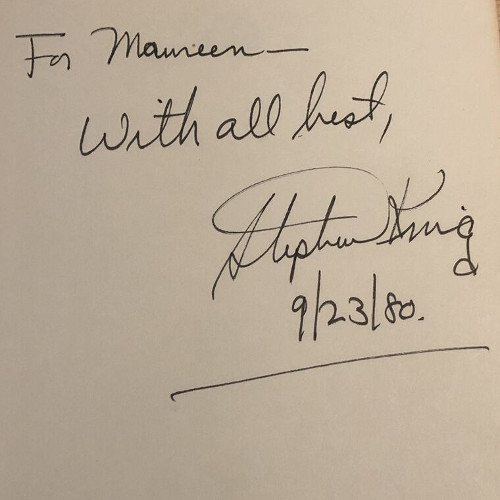 For Maureen—
With all best,
Stephen King
9/23/80.